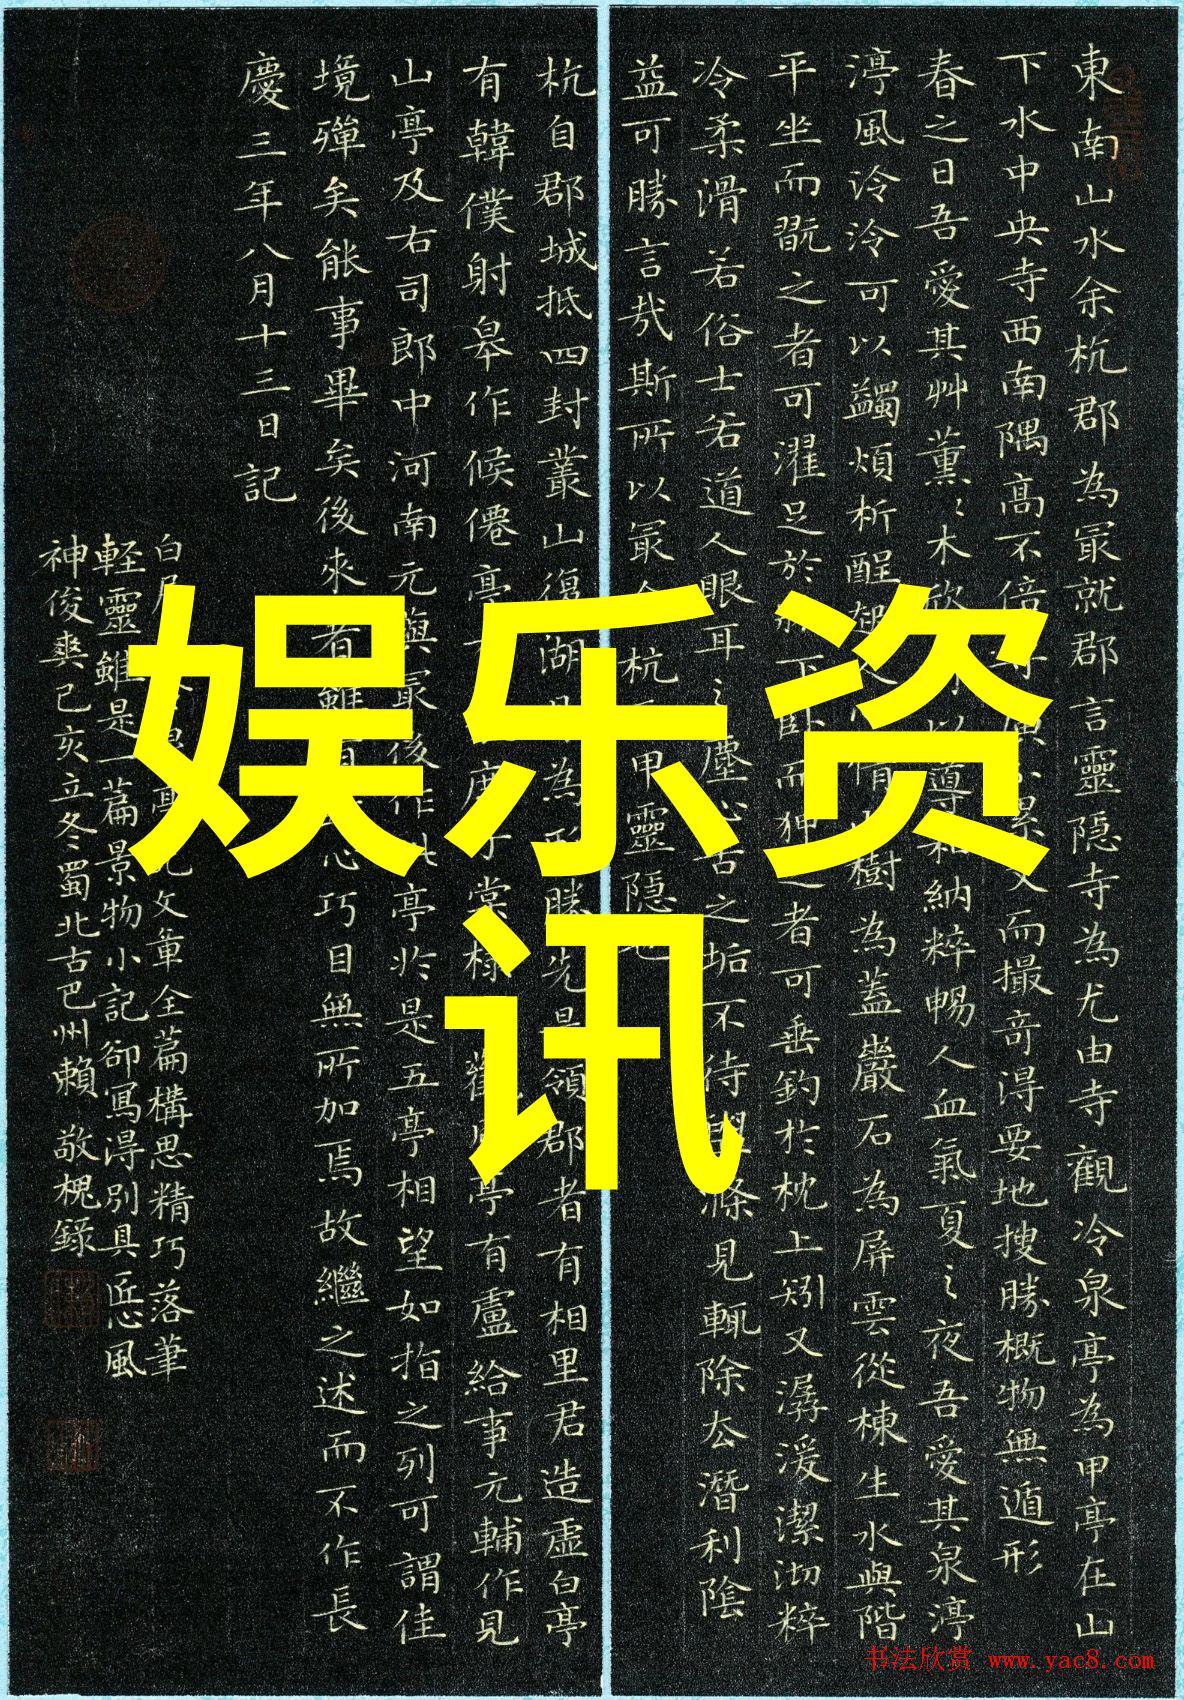 東南山水余杭郡為冣就郡言靈隠寺為尤由寺觀冷泉亭為甲亭在山
下水中央寺西南隅高不倍
而撮奇得要地搜勝概物無遁形
春之日吾愛其艸薰〻木欣
導和納粹暢人血氣夏之夜吾愛其泉渟
渟風泠泠可以蠲煩析酲起
樹為蓋巖石為屏雲從棟生水與階
平坐而翫之者可濯足於
臥而狎之者可垂釣於枕上矧又潺湲潔沏粹
冷柔滑若俗士若道人眼耳之塵心舌之垢不待盥滌見輒除去潛利陰
益可勝言哉斯所以冣
杭
甲靈隠
杭自郡城抵四封叢山復湖
為形勝先是領郡者有相里君造虛白亭
有韓僕射皋作候僊亭
庶子棠棣
觀風亭有盧給事元輔作見
山亭及右司郎中河南元藇冣後作此亭於是五亭相望如指之列可謂佳
境殫矣能事畢矣後來者雖有
心巧目無所加焉故繼之述而不作長
慶三年八月十三日記
白
文章全篇構思精巧落筆
輕靈雖是一篇景物小記卻寫得別具匠心風
神俊爽己亥立冬蜀北古巴州賴敬槐錄
娱乐资
讯
书法欣赏 www.yac8.com